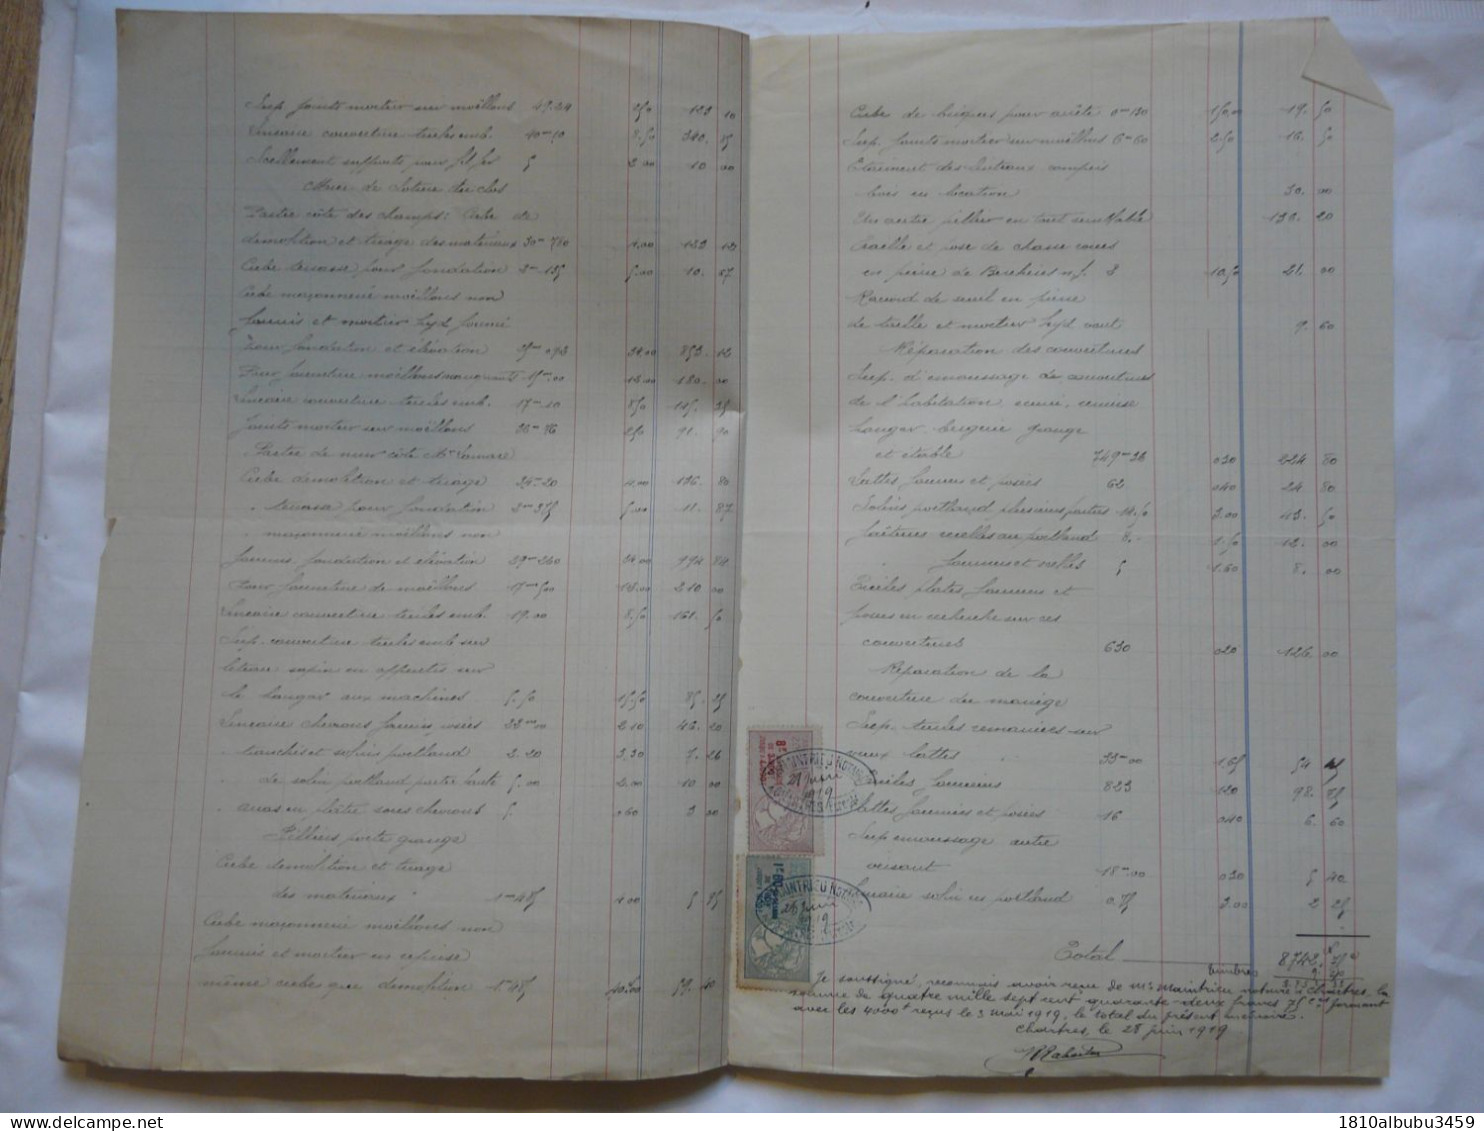 Sup. Joints mortier sur moëllons 49.24 2 50 123 10
Linéaire couverture tuiles emb. 40 m 10 8.50 340. 85
Scellement supports pour fil fer 5 2 00 10 00
Mur de clôture du clos
Partie côté des champs: Cube de
démolition et triage des matériaux 30 m 780 4.00 123 12
Cube terrasse pour fondation 2 m 135 5.00 10. 67
Cube maçonnerie moëllons non
fournis et mortier hyd. fourni
pour fondation et élévation 35 m 093 24.00 852. 12
Pour fourniture moëllons manquants 15 m 00 12.00 180. 00
Linéaire couverture tuiles emb. 17 m 10 8 50 145. 35
Joints mortier sur moëllons 36 76 2 50 91. 90
Partie de mur côté Mr
Cube démolition et triage 34 m 20 4.00 136. 80
" terrasse pour fondation 2 m 375 5.00 11. 87
" maçonnerie moëllons non
fournis, fondation et élévation 24.00 84
Pour fourniture de moëllons 17 m 500 12.00 210 00
Linéaire couverture tuiles emb. 19.00 8.50 161. 50
Sup. couverture tuiles emb sur
sapin en appentis sur
le hangar aux machines 5.50 15.50 85. 25
Linéaire chevrons fournis, posés 22 m 00 2.10 46. 20
" tranchis et solin portland 2.20 3.30 7. 26
" de solin portland partie haute 5.00 2.00 10 00
" en plâtre sous chevrons 5. 0.60 3 00
Pilliers porte grange
Cube démolition et triage
des matériaux 1 m 485 4.00 5 95
Cube maçonnerie moëllons non
fournis et mortier en reprise
même cube que démolition 1 m 485 40.00 59. 40
Cube de briques pour arrête 0 m 130 150,00 19. 50
Sup. Joints mortier sur moëllons 6 m 60 2.50 16. 50
Etaiement des linteaux compris
bois en location 30. 00
Un autre pillier en tout semblable 130. 20
Taille et pose de chasse roues
en pierre de Berchères n.f. 2 10.50 21. 00
Raccord de seuil en pierre
de taille et mortier hyd vaut 9. 60
Réparation des couvertures
Sup. d'emoussage de couvertures
de l'habitation écurie, remise
hangar bergerie grange
et étable 749 m 36 0 30 224 80
Lattes fournies et posées 62 0 40 24. 80
Solins portland plusieurs parties 14.50 3.00 43. 50
faîtières scellées au portland 8. 1.50 12. 00
" fournies et scellées 5 1.60 8. 00
Tuiles plates fournies et
posées en recherche sur ces
couvertures 630 0 20 126 00
Réparation de la
couverture du manège
Sup. tuiles remaniées sur
vieux lattes 33 m 00 1.65 54 45
Tuiles fournies 823 1 20 98. 75
lattes fournies et posées 16 0 40 6. 60
Sup emoussage autre
versant 18 m 00 0 30 5 40
Linéaire solin en portland 0.75 3.00 2 25
Total 8742. 75
timbres
Je soussigné, reconnais avoir reçu de Me Maintrieu notaire à Chartres, la
somme de quatre mille sept cent quarante-deux francs 75 ces formant
avec les 4000 f reçus le 3 mai 1919, le total du présent mémoire.
Chartres, le 28 juin 1919
MAINTRIEU NOTAIRE
21 juin
1919
MAINTRIEU NOTAIRE
26 juin
1919
1810albubu3459